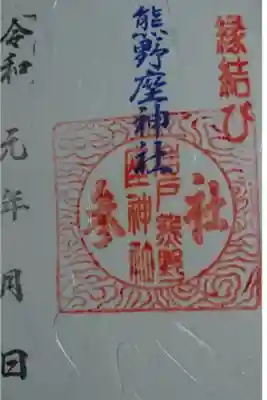 縁結び
熊野座神社
参社
上戸熊野
座神社
令和元年月日